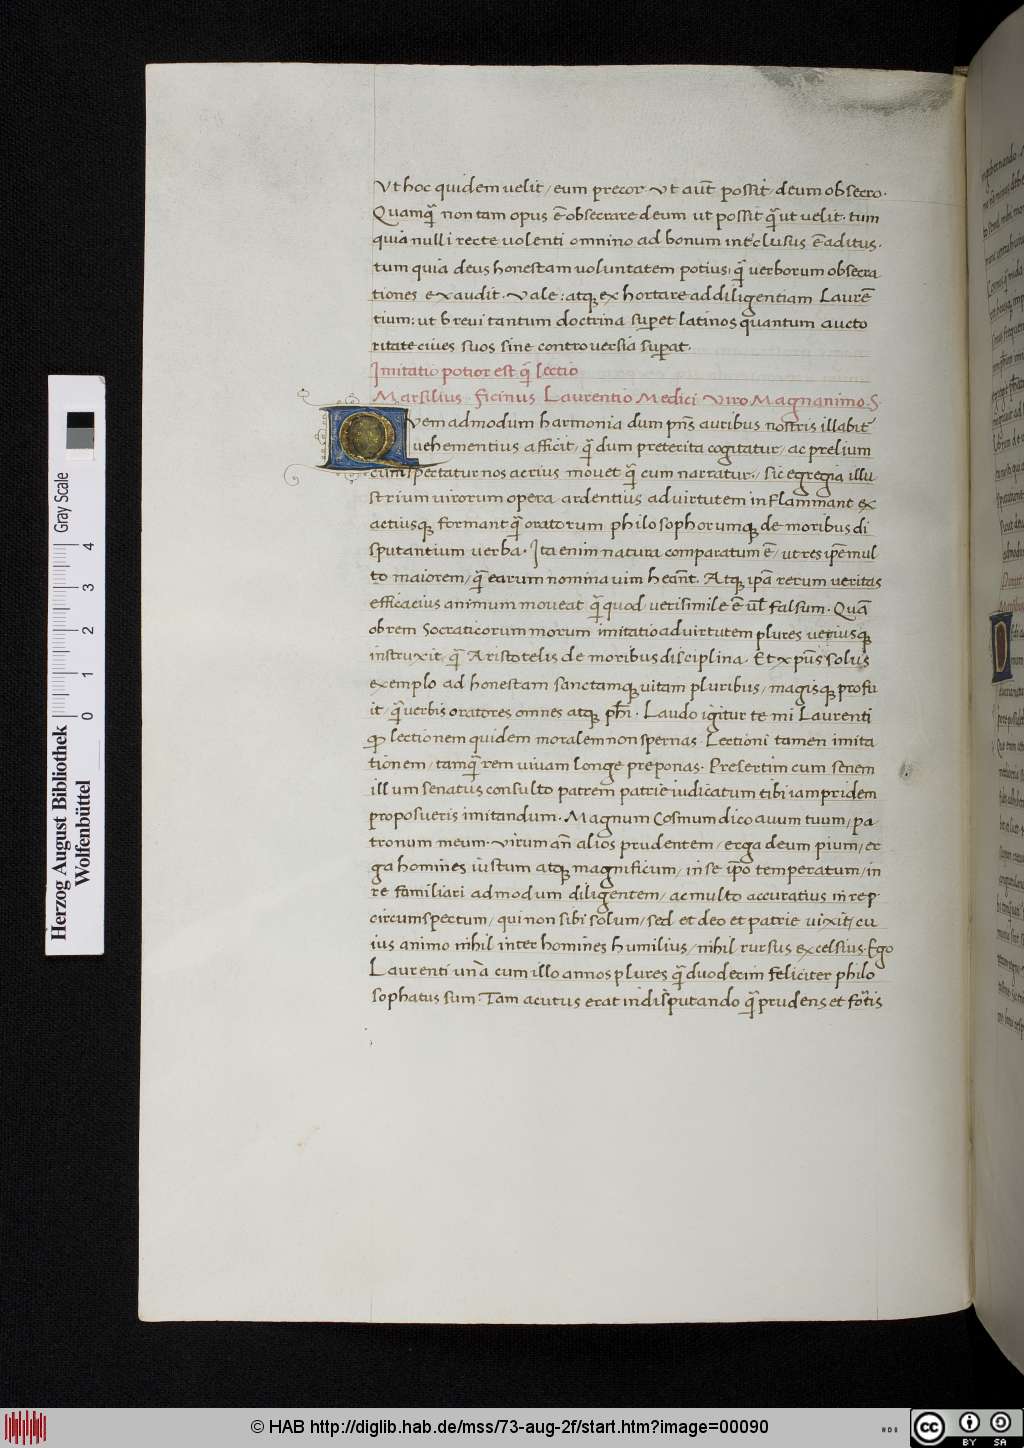 Vt hoc quidem uelit / eum precor. Vt aūt possit / deum obsecro.
Quamq̄ non tam opus ē obsecrare deum ut possit q̄ ut uelit. tum
quia nulli recte uolenti omnino ad bonum int̄clusus ē aditus.
tum quia deus honestam uoluntatem potius / q̄ uerborum obsecra
tiones exaudit. Vale: atq; exhortare ad diligentiam Laurē
tium: ut breui tantum doctrina superet latinos quantum aucto
ritate ciues suos sine controuersia superat.
Imitatio potior est q̄ lectio
Marsilius Ficinus Laurentio Medici Viro Magnanimo. S.
Quem admodum harmonia dum pn̄s auribus nostris illabit̄
uehementius afficit / q̄ dum preterita cogitatur / ac prelium
cum spectatur nos acrius mouet q̄ cum narratur. / Sic egregia illu
strium uirorum opera ardentius ad uirtutem inflammant ex
actiusq; formant q̄ oratorum philosophorumq; de moribus di
sputantium uerba. Ita enim natura comparatum ē / ut res ip̄e mul
to maiorem / q̄ earum nomina uim heānt. Atq; ip̄a rerum ueritas
efficacius animum moueat q̄ quod uerisimile ē ūl falsum. Quā
obrem Socraticorum morum imitatio ad uirtutem plures ueriusq;
instruxit / q̄ Aristotelis de moribus disciplina. Et xp̄us solus
exemplo ad honestam sanctamq; uitam pluribus / magisq; profu
it / q̄ uerbis oratores omnes atq; ph̄i. Laudo igitur te mi Laurenti
ꝙ lectionem quidem moralem non spernas. Lectioni tamen imita
tionem / tamq̄ rem uiuam longe preponas. Presertim cum senem
illum senatus consulto patrem patrie iudicatum tibi iampridem
proposueris imitandum. Magnum Cosmum dico auum tuum / pa-
tronum meum. Virum an̄ alios prudentem / erga deum pium / er
ga homines iustum atq; magnificum / in se ip̄o temperatum / in
re familiari admodum diligentem / ac multo accuratius in rep.
circumspectum / qui non sibi solum / sed et deo et patrie uixit / cu
ius animo nihil inter homines humilius / nihil rursus excelsius. Ego
Laurenti una cum illo annos plures q̄ duodecim feliciter philo
sophatus sum. Tam acutus erat in disputando q̄ prudens et fōtis
Herzog August Bibliothek
Wolfenbüttel
Gray Scale
0 1 2 3 4
© HAB http://diglib.hab.de/mss/73-aug-2f/start.htm?image=00090
cc BY SA